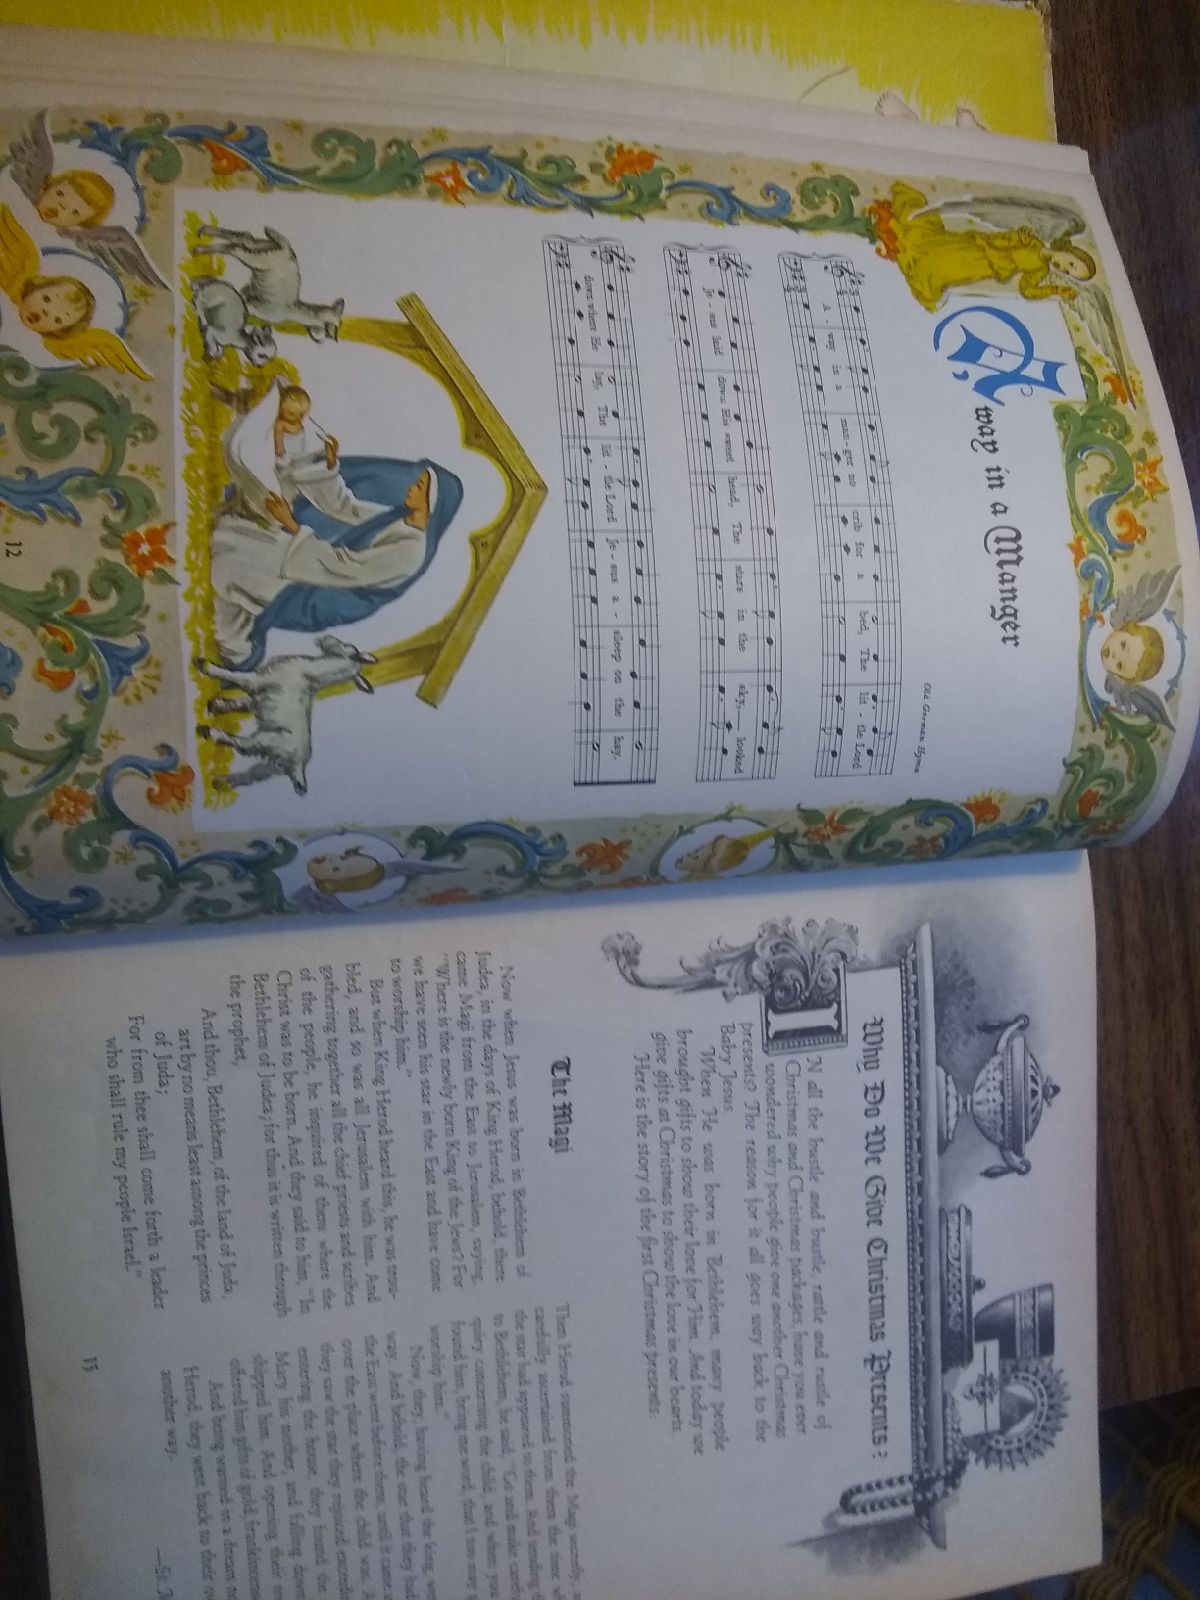 Away in a Manger
Old German Hymn
A - way in a man - ger no crib for a bed, The lit - tle Lord
Je - sus laid down His sweet head, The stars in the sky, looked
down where He lay, The lit - tle Lord Je - sus a - sleep on the hay.
12
Why Do We Give Christmas Presents?
IN all the hustle and bustle, rattle and rustle of
Christmas and Christmas packages, have you ever
wondered why people give one another Christmas
presents? The reason for it all goes way back to the
Baby Jesus.
When He was born in Bethlehem, many people
brought gifts to show their love for Him. And today we
give gifts at Christmas to show the love in our hearts.
Here is the story of the first Christmas presents:
The Magi
Now when Jesus was born in Bethlehem of
Judea, in the days of King Herod, behold, there
came Magi from the East to Jerusalem, saying,
"Where is the newly born King of the Jews? For
we have seen his star in the East and have come
to worship him."
But when King Herod heard this, he was trou-
bled, and so was all Jerusalem with him. And
gathering together all the chief priests and scribes
of the people, he inquired of them where the
Christ was to be born. And they said to him, "In
Bethlehem of Judea; for thus it is written through
the prophet,
And thou, Bethlehem, of the land of Juda,
art by no means least among the princes
of Juda;
For from thee shall come forth a leader
who shall rule my people Israel."
Then Herod summoned the Magi secretly,
carefully ascertained from them the time
the star had appeared to them. And sending
to Bethlehem, he said, "Go and make
quiry concerning the child, and when you
found him, bring me word, that I too may
worship him."
Now they, having heard the king, went
way. And behold, the star that they had
the East went before them, until it came
over the place where the child was.
they saw the star they rejoiced
entering the house, they found the
Mary his mother, and falling down
shipped him. And opening their
offered him gifts of gold, frankincense
And being warned in a dream
Herod, they went back to their
another way.
—St.
13